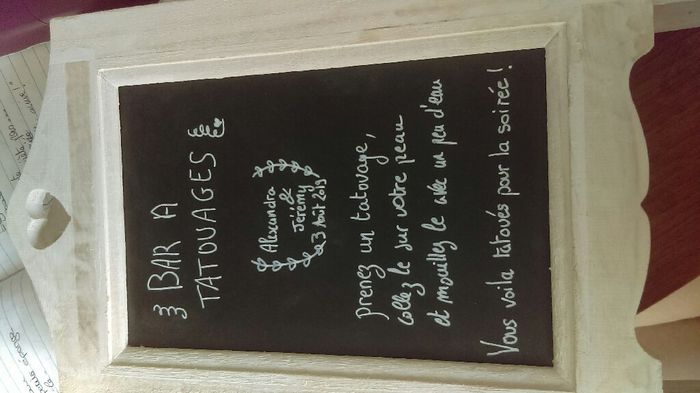 BAR A
TATOUAGES
Alexandra
&
Jérémy
le 3 Août 2019
prenez un tatouage,
collez le sur votre peau
et mouillez le avec un peu d'eau
Vous voila tatoués pour la soirée !